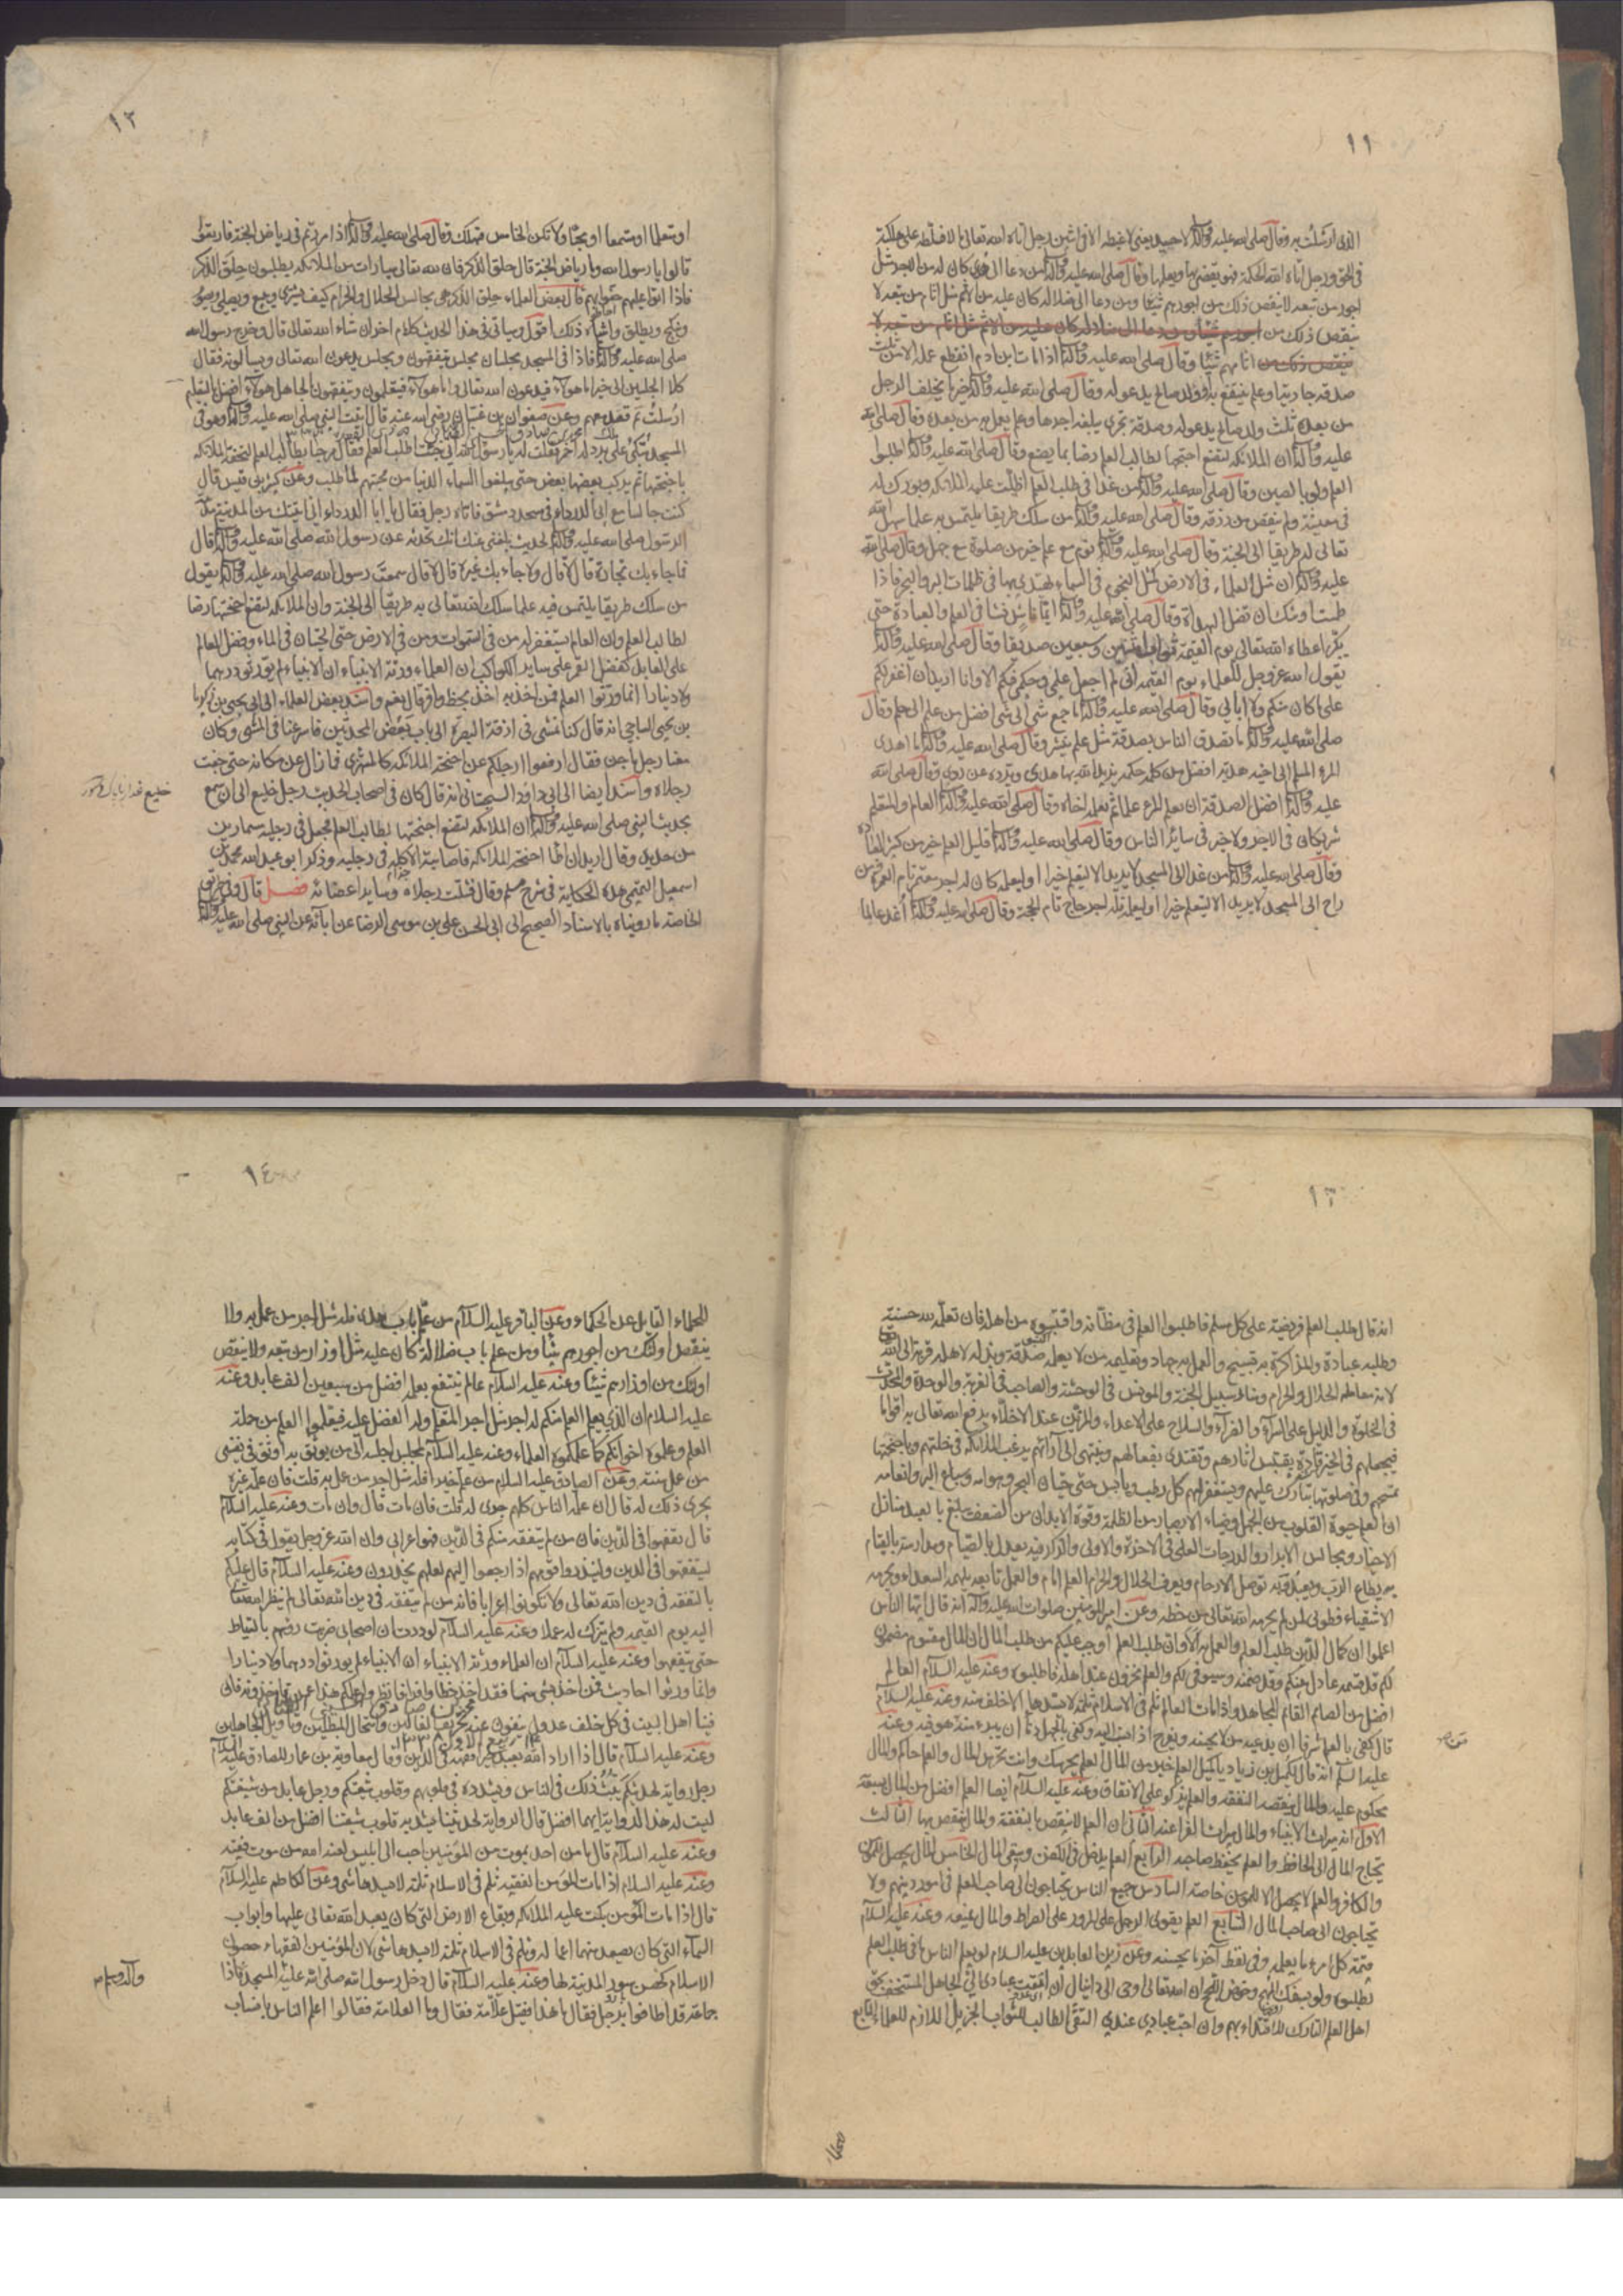 ١١
الذى ارسلت به وقال صلى الله عليه وآله لا حسد يعنى لا غبطة الا فى اثنين رجل اتاه الله تعالى مالا فسلطه على هلكته
فى الحق ورجل اتاه الله الحكمة فهو يقضى بها ويعلمها وقال صلى الله عليه وآله من دعا الى هدى كان له من الاجر مثل
اجور من تبعه لا ينقص ذلك من اجورهم شيئا ومن دعا الى ضلالة كان عليه من الاثم مثل اثام من تبعه لا
ينقص ذلك من اجورهم شيئا ومن دعا الى ضلالة كان عليه من الاثم مثل اثام من تبعه لا
ينقص ذلك من اثامهم شيئا وقال صلى الله عليه وآله اذا مات ابن ادم انقطع عمله الا من ثلث
صدقه جارية او علم ينتفع به او ولد صالح يدعو له وقال صلى الله عليه وآله خير ما يخلف الرجل
من بعده ثلث ولد صالح يدعو له وصدقة تجرى يبلغه اجرها وعلم يعمل به من بعده وقال صلى الله
عليه وآله ان الملائكه لتضع اجنحتها لطالب العلم رضا بما يصنع وقال صلى الله عليه وآله اطلبوا
العلم ولو بالصين وقال صلى الله عليه وآله من غدا فى طلب العلم اظلت عليه الملائكه وبورك له
فى معيشته ولم ينقص من رزقه وقال صلى الله عليه وآله من سلك طريقا يلتمس به علما سهل الله
تعالى له طريقا الى الجنة وقال صلى الله عليه وآله نوم مع علم خير من صلوة مع جهل وقال صلى الله
عليه وآله ان مثل العلماء فى الارض كمثل النجوم فى السماء يهتدى بها فى ظلمات البر والبحر فاذا
طمست اوشك ان تضل الهداة وقال صلى الله عليه وآله ايما ناش نشا فى العلم والعبادة حتى
يكبر اعطاه الله تعالى يوم القيمة ثواب اثنين وسبعين صديقا وقال صلى الله عليه وآله
يقول الله عز وجل للعلماء يوم القيمة انى لم اجعل علمى وحكمى فيكم الا وانا اريد ان اغفر لكم
على ما كان منكم ولا ابالى وقال صلى الله عليه وآله ما جمع شئ الى شئ افضل من علم الى حلم وقال
صلى الله عليه وآله ما تصدق الناس بصدقة مثل علم ينشر وقال صلى الله عليه وآله ما اهدى
المرء المسلم الى اخيه هدية افضل من كلمة حكمة يزيده الله بها هدى ويرده عن ردى وقال صلى الله
عليه وآله افضل الصدقة ان يعلم المرء علما ثم يعلمه اخاه وقال صلى الله عليه وآله العالم والمتعلم
شريكان فى الاجر ولا خير فى سائر الناس وقال صلى الله عليه وآله قليل العلم خير من كثير العبادة
وقال صلى الله عليه وآله من غدا الى المسجد لا يريد الا ليتعلم خيرا او ليعلمه كان له اجر معتمر تام العمرة ومن
راح الى المسجد لا يريد الا ليتعلم خيرا او ليعلمه فله اجر حاج تام الحجة وقال صلى الله عليه وآله اغد عالما
١٢
او متعلما او مستمعا او محبا ولا تكن الخامس فتهلك وقال صلى الله عليه وآله اذا مررتم فى رياض الجنة فارتعوا
قالوا يا رسول الله وما رياض الجنة قال حلق الذكر فان لله تعالى سيارات من الملائكه يطلبون حلق الذكر
فاذا اتوا عليهم حفوا بهم قال بعض العلماء حلق الذكر هى مجالس الحلال والحرام كيف يشترى ويبيع ويصلى ويصوم
وينكح ويطلق واشباه ذلك اقول وسياتى فى هذا الحديث كلام اخر ان شاء الله تعالى قال وخرج رسول الله
صلى الله عليه وآله فاذا فى المسجد مجلسان مجلس يتفقهون ومجلس يدعون الله تعالى ويسالونه فقال
كلا المجلسين الى خير اما هؤلاء فيدعون الله تعالى واما هؤلاء فيتعلمون ويتفقهون الجاهل هؤلاء افضل بالتعليم
ارسلت ثم قعد معهم وعن صفوان بن غسان رضى الله عنه قال اتيت النبى صلى الله عليه وآله وهو فى
المسجد متكئ على برد له احمر فقلت له يا رسول الله انى جئت اطلب العلم فقال مرحبا بطالب العلم لتحفه الملائكه
باجنحتها ثم يركب بعضها بعض حتى يبلغوا السماء الدنيا من محبتهم لما طلب وعن كثير بن قيس قال
كنت جالسا مع ابى الدرداء فى مسجد دمشق فاتاه رجل فقال يا ابا الدرداء انى اتيتك من المدينة مدينة
الرسول صلى الله عليه وآله لحديث بلغنى عنك انك تحدثه عن رسول الله صلى الله عليه وآله قال
فما جاء بك تجارة قال لا قال ولا جاء بك غيره قال لا قال سمعت رسول الله صلى الله عليه وآله يقول
من سلك طريقا يلتمس فيه علما سلك الله تعالى به طريقا الى الجنة وان الملائكه لتضع اجنحتها رضا
لطالب العلم وان العالم يستغفر له من فى السموات ومن فى الارض حتى الحيتان فى الماء وفضل العالم
على العابد كفضل القمر على ساير الكواكب ان العلماء ورثة الانبياء ان الانبياء لم يورثوا درهما
ولا دينارا انما ورثوا العلم فمن اخذ به اخذ بحظ وافر قال نعم واسند بعض العلماء الى ابى يحيى بن زكريا
بن يحيى الساجى انه قال كنا نمشى فى ازقة البصرة الى باب بعض المحدثين فاسرعنا فى المشى وكان
معنا رجل ماجن فقال ارفعوا ارجلكم عن اجنحة الملائكه كالمستهزى فما زال عن مكانه حتى جفت
رجلاه واسند ايضا الى ابى داود السجستانى انه قال كان فى اصحاب الحديث رجل خليع الى ان سمع
بحديث النبى صلى الله عليه وآله ان الملائكه لتضع اجنحتها لطالب العلم فجعل فى رجليه مسمارين
من حديد وقال اريد ان اطا اجنحة الملائكه فاصابته الاكلة فى رجليه وذكر ابو عبد الله محمد بن
اسمعيل التيمى هذه الحكاية فى شرح مسلم وقال فشلت رجلاه وساير اعضائه فصل قال ومن طريق
الخاصة ما رويناه بالاسناد الصحيح الى ابى الحسن على بن موسى الرضا عن ابائه عن النبى صلى الله عليه وآله
١٣
انه قال طلب العلم فريضة على كل مسلم فاطلبوا العلم فى مظانه واقتبسوه من اهله فان تعلمه لله حسنة
وطلبه عبادة والمذاكرة به تسبيح والعمل به جهاد وتعليمه من لا يعلمه صدقة وبذله لاهله قربة الى الله
لانه معالم الحلال والحرام ومنار سبيل الجنة والمونس فى الوحشة والصاحب فى الغربة والوحدة والمحدث
فى الخلوة والدليل على السراء والضراء والسلاح على الاعداء والزين عند الاخلاء يرفع الله تعالى به اقواما
فيجعلهم فى الخير قادة يقتبس اثارهم ويقتدى بفعالهم وينتهى الى آرائهم يرغب الملائكه فى خلتهم وباجنحتها
تمسحهم وفى صلوتها تبارك عليهم ويستغفر لهم كل رطب ويابس حتى حيتان البحر وهوامه وسباع البر وانعامه
ان العلم حيوة القلوب من الجهل وضياء الابصار من الظلمة وقوة الابدان من الضعف يبلغ بالعبد منازل
الاخيار ومجالس الابرار والدرجات العلى فى الاخرة والاولى والذكر فيه يعدل بالصيام ومدارسته بالقيام
به يطاع الرب ويعبد وبه توصل الارحام ويعرف الحلال والحرام العلم امام والعمل تابعه يلهمه السعداء ويحرمه
الاشقياء فطوبى لمن لم يحرمه الله تعالى من حظه وعن امير المومنين صلوات الله عليه وآله انه قال ايها الناس
اعلموا ان كمال الدين طلب العلم والعمل به الا وان طلب العلم اوجب عليكم من طلب المال ان المال مقسوم مضمون
لكم قد قسمه عادل بينكم وقد ضمنه وسيوفى لكم والعلم مخزون عند اهله فاطلبوه وعنه عليه السلام العالم
افضل من الصائم القائم المجاهد واذا مات العالم ثلم فى الاسلام ثلمة لا يسدها الا خلف منه وعنه عليه السلام
قال كفى بالعلم شرفا ان يدعيه من لا يحسنه ويفرح اذا نسب اليه وكفى بالجهل ذما ان يبرء منه من هو فيه وعنه
عليه السلام انه قال لكميل بن زياد يا كميل العلم خير من المال العلم يحرسك وانت تحرس المال والعلم حاكم والمال
محكوم عليه والمال ينقصه النفقة والعلم يزكو على الانفاق وعنه عليه السلام ايضا العلم افضل من المال بسبعة
الاول انه ميراث الانبياء والمال ميراث الفراعنة الثانى ان العلم لا ينقص بالنفقة والمال ينقص بها الثالث
يحتاج المال الى الحافظ والعلم يحفظ صاحبه الرابع العلم يدخل فى الكفن ويبقى المال الخامس المال يحصل للمومن
والكافر والعلم لا يحصل الا للمومن خاصة السادس جميع الناس يحتاجون الى صاحب العلم فى امور دينهم ولا
يحتاجون الى صاحب المال السابع العلم يقوى الرجل على المرور على الصراط والمال يمنعه وعنه عليه السلام
قيمة كل امرء ما يعلمه وفى لفظ آخر ما يحسنه وعن زين العابدين عليه السلام لو يعلم الناس ما فى طلب العلم
لطلبوه ولو بسفك المهج وخوض اللجج ان الله تعالى اوحى الى دانيال ان امقت عبادى الى الجاهل المستخف بحق
اهل العلم التارك للاقتداء بهم وان احب عبادى عندى التقى الطالب للثواب الجزيل اللازم للعلماء التابع
١٤
للحلماء القابل عن الحكماء وعن الباقر عليه السلام من علم باب هدى فله مثل اجر من عمل به ولا
ينقص اولئك من اجورهم شيئا ومن علم باب ضلالة كان عليه مثل اوزار من تبعه ولا ينقص
اولئك من اوزارهم شيئا وعنه عليه السلام عالم ينتفع بعلمه افضل من سبعين الف عابد وعنه
عليه السلام ان الذى يعلم العلم منكم له اجر مثل اجر المتعلم وله الفضل عليه فتعلموا العلم من حملة
العلم وعلموه اخوانكم كما علمكموه العلماء وعنه عليه السلام لمجلس اجلسه الى من يوثق به اوثق فى نفسى
من عمل سنة وعن الصادق عليه السلام من علم خيرا فله مثل اجر من عمل به قلت فان علمه غيره
يجرى ذلك له قال ان علمه الناس كلهم جرى له قلت فان مات قال وان مات وعنه عليه السلام
قال تفقهوا فى الدين فان من لم يتفقه منكم فى الدين فهو اعرابى وان الله عز وجل يقول فى كتابه
ليتفقهوا فى الدين ولينذروا قومهم اذا رجعوا اليهم لعلهم يحذرون وعنه عليه السلام قال عليكم
بالتفقه فى دين الله تعالى ولا تكونوا اعرابا فانه من لم يتفقه فى دين الله تعالى لم ينظر الله تعالى
اليه يوم القيمة ولم يزك له عملا وعنه عليه السلام لوددت ان اصحابى ضربت رؤسهم بالسياط
حتى يتفقهوا وعنه عليه السلام ان العلماء ورثة الانبياء ان الانبياء لم يورثوا درهما ولا دينارا
وانما ورثوا احاديث فمن اخذ بشئ منها فقد اخذ حظا وافرا فانظروا علمكم هذا عمن تاخذونه فان
فينا اهل البيت فى كل خلف عدولا ينفون عنه تحريف الغالين وانتحال المبطلين وتاويل الجاهلين
وعنه عليه السلام قال اذا اراد الله بعبد خيرا فقهه فى الدين وقال معاوية بن عمار للصادق عليه السلام
رجل راوية لحديثكم يبث ذلك فى الناس ويشدده فى قلوبهم وقلوب شيعتكم ورجل عابد من شيعتكم
ليست له هذه الرواية ايهما افضل قال الراوية لحديثنا يشد به قلوب شيعتنا افضل من الف عابد
وعنه عليه السلام قال ما من احد يموت من المؤمنين احب الى ابليس لعنه الله من موت فقيه
وعنه عليه السلام اذا مات المؤمن الفقيه ثلم فى الاسلام ثلمة لا يسدها شى وعن الكاظم عليه السلام
قال اذا مات المؤمن بكت عليه الملائكه وبقاع الارض التى كان يعبد الله تعالى عليها وابواب
السماء التى كان يصعد منها اعماله وثلم فى الاسلام ثلمة لا يسدها شى لان المؤمنين الفقهاء حصون
الاسلام كحصن سور المدينة لها وعنه عليه السلام قال دخل رسول الله صلى الله عليه المسجد فاذا
جماعة قد اطافوا برجل فقال ما هذا فقيل علامة فقال وما العلامة فقالوا اعلم الناس بانساب